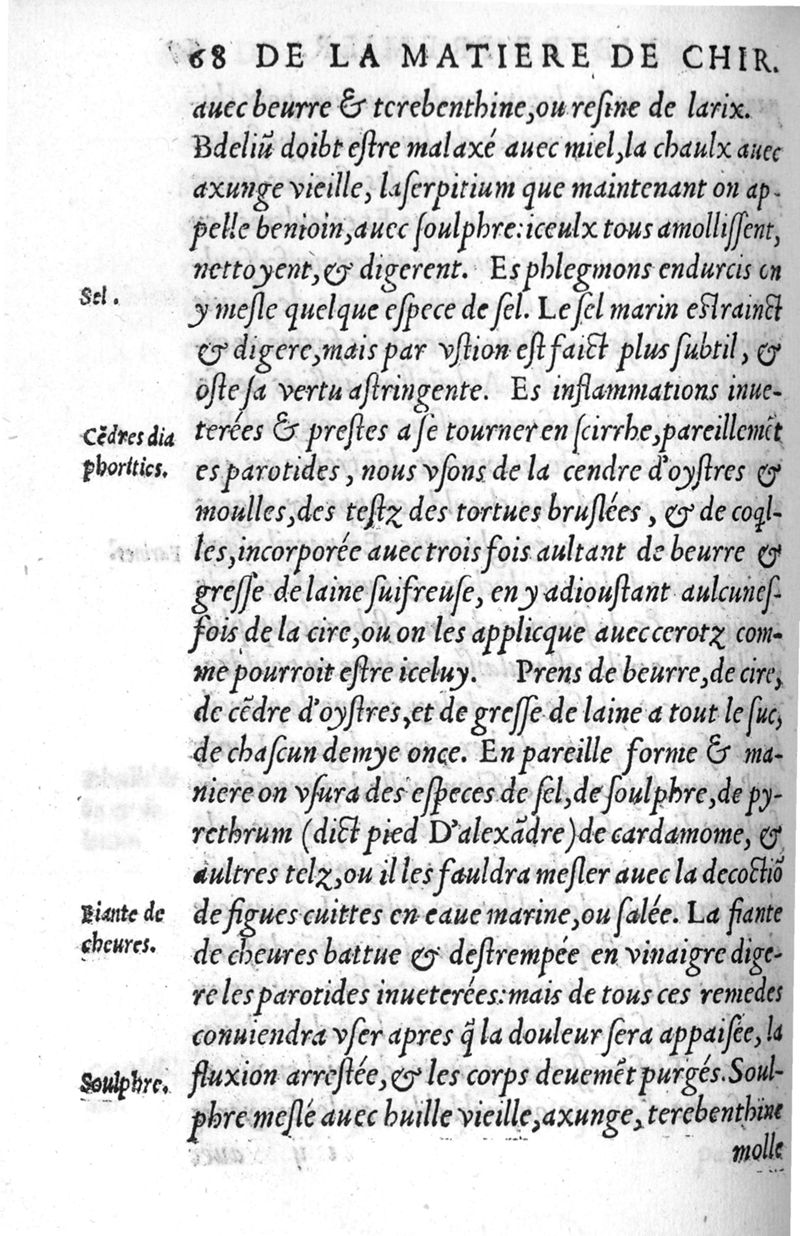 68 DE LA MATIERE DE CHIR.
auec beurre & terebenthine, ou reſine de larix.
Bdeliũ doibt eſtre malaxé auec miel, la chaulx auec
axunge vieille, laſerpitium que maintenant on ap-
pelle benioin, auec ſoulphre: iceulx tous amolliſſent,
nettoyent, & digerent. Es phlegmons endurcis on
Sel.
y meſle quelque eſpece de ſel. Le ſel marin eſtrainct
& digere, mais par vſtion eſt faict plus ſubtil, &
oſte ſa vertu aſtringente. Es inflammations inue-
Cẽdres dia
phoritics.
terées & preſtes a ſe tourner en ſcirrhe, pareillemẽt
es parotides, nous vſons de la cendre d'oyſtres &
moulles, des teſtz des tortues bruſlées, & de coql-
les, incorporée auec trois fois aultant de beurre &
greſſe de laine ſuifreuſe, en y adiouſtant aulcuneſ-
fois de la cire, ou on les applicque auec cerotz com-
me pourroit eſtre iceluy. Prens de beurre, de cire,
de cẽdre d'oyſtres, et de greſſe de laine a tout le ſuc,
de chaſcun demye once. En pareille forme & ma-
niere on vſura des eſpeces de ſel, de ſoulphre, de py-
rethrum (dict pied D'alexãdre) de cardamome, &
aultres telz, ou il les fauldra meſler auec la decoctiõ
Fiante de
cheures.
de figues cuittes en eaue marine, ou ſalée. La fiante
de cheures battue & deſtrempée en vinaigre dige-
re les parotides inueterées: mais de tous ces remedes
conuiendra vſer apres q̃ la douleur ſera appaiſée, la
Soulphre.
fluxion arreſtée, & les corps deuemẽt purgés. Soul-
phre meſlé auec huille vieille, axunge, terebenthine
molle